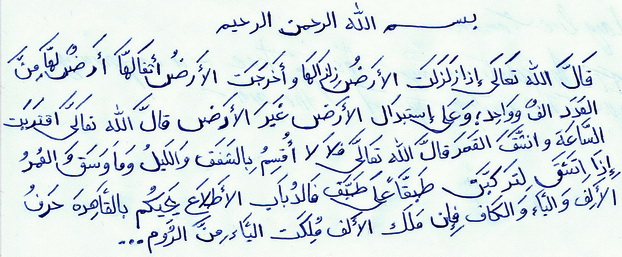 بسم الله الرحمن الرحيم
قَالَ الله تَعَالَى إِذَا زُلْزِلَتْ الأَرْضُ زِلْزَالَهَا وَأَخْرَجَتْ الأَرْضُ أَثقَالَهَا أَرَضُ لَهَا مِنَ
العَدَد الفٌ وَوَاحِد؛ وَعَلَى إستبدَال الأرَضِ غَيرَ الأَرْضِ قَالَ الله تَعَالَى اقتَرَبَت
السَّاعَة وَانشَقَّ القَمَر قَالَ الله تَعَالَى فَلَا لَا أُقسِمُ بِالشَفَقِ وَالَّيلُ وَمَا وَسَقَ وَالقَمَرُ
إِذَا اتَسَقَ لَتَركَبُنَّ طَبَقًا عَلَى طَبَقٍ فَالدُبَاب الأَطْلَاع بِالقَاهِرَه حَرفُ
الأَلِف وَاليَاء وَالكَاف فَإِن مَلَكَ الأَلِفَ مُلِكَت اليَاء مِنَّ الرُّوم...